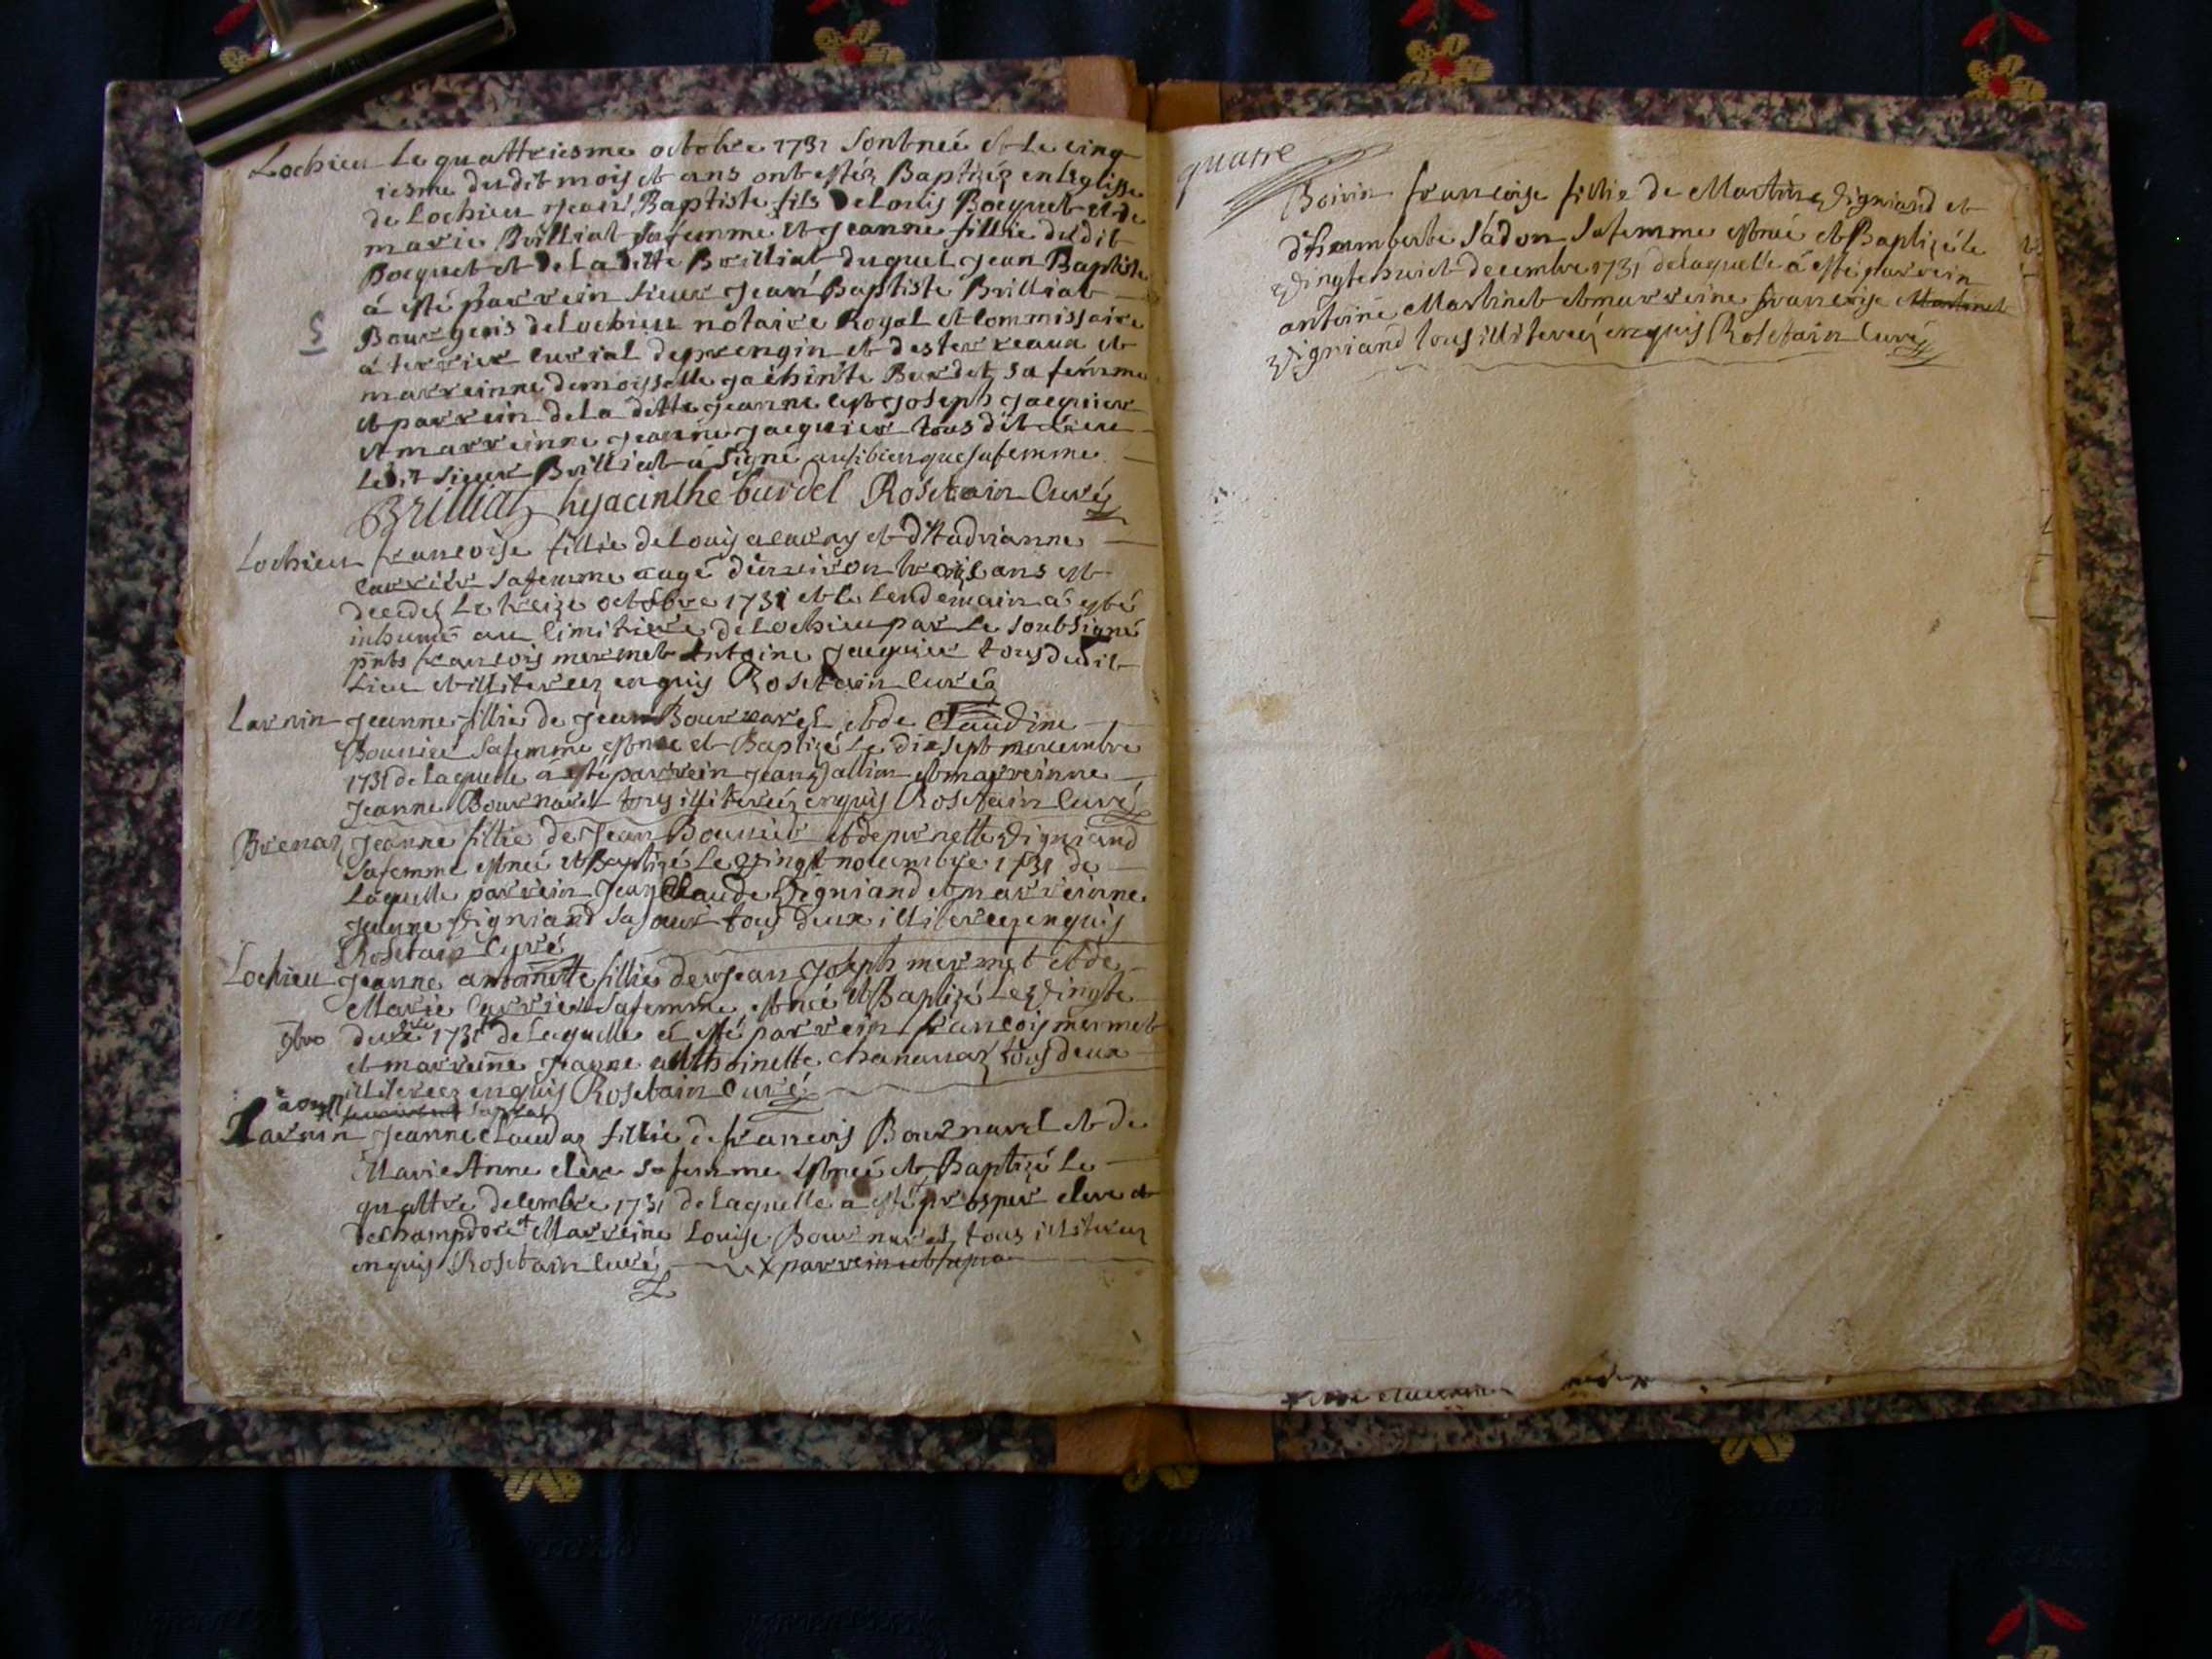 Lochieu Le quattriesme octobre 1731 sont neé et le cinq
iesme dudit mois et ans ont estéz Baptizéz en leglisse
de Lochieu Jean Baptiste fils de Louis Bocquet et de
marie Brilliat sa femme et Jeanne fillie dudit
Bocquet et de La ditte Brilliat duquel Jean Baptiste
á esté parrein sieur Jean Baptiste Brilliat
5 Bourgeois de Lochieu notaire Royal et Commissaire
á terrier curial de et des terreaux et
marreinne demoisselle Jachinte Burdet sa femme
et parrein de la ditte Jeanne est Joseph Jacquier
et marreinne Jeanne Jacquier tous dit Lieu
Ledit sieur Brilliat á signé ausi bien que sa femme
Brilliat hyacinthe burdel Rosetain Curé
Lochieu francoise fillie de Louis et d'Hadrianne
Carrier sa femme augé d'environ trois ans est
decedeé Le treize octobre 1731 et le Lendemain á esté
inhumeé au Cimitiere de Lochieu par le soubsigné
pnts francois mermet Antoine Jacquier tous dudit
Lieu et illitereez enquis Rosetain Curé
Larnin Jeanne fillie de Jean Bournarel et de Claudine
Bouvier sa femme est neé et Baptizé Le dix sept novembre
1731 de Laquelle á esté parrein Jean Jallion et marreinne
Jeanne Bournarel tous illitereéz enquis Rosetain Curé
Brenaz Jeanne fillie de Jean Bouvier et de pernette Vigniand
sa femme est neé et Baptizé Le Vingt novembre 1731 de
Laquelle parrein Jean Claude Vigniand et marreinne
Jeanne Vigniand sa soeur tous deux illitereez enquis
Rosetain Curé
Lochieu Jeanne antoinette fillie de Jean Joseph mermet et de
Marie Carrier sa femme est neé et Baptizé Le Vingte
9bre deux 1731 de Laquelle á esté parrein francois mermet
et marreine Jeanne anthoinette Chanavaz tous deux
illitereez enquis Rosetain Curé
Larnin Jeanne Claudaz fillie de francois Bournarel et de
Marie Anne elere sa femme est neé et Baptizé Le
quattre decembre 1731 de Laquelle a esté + prosper elere et
de Champdore et Marreine Louise Bournarel tous illitereez
enquis Rosetain Curé x parrein ut supra
quatre
Boirin francoise fillie de Martin Vigniand et
d'humberte Sadon sa femme est neé et Baptizé le
Vingte huict decembre 1731 de laquelle á esté parrein
antoine Martinet et marreine francoise Martinet
Vigniand tous illitereéz enquis Rosetain Curé